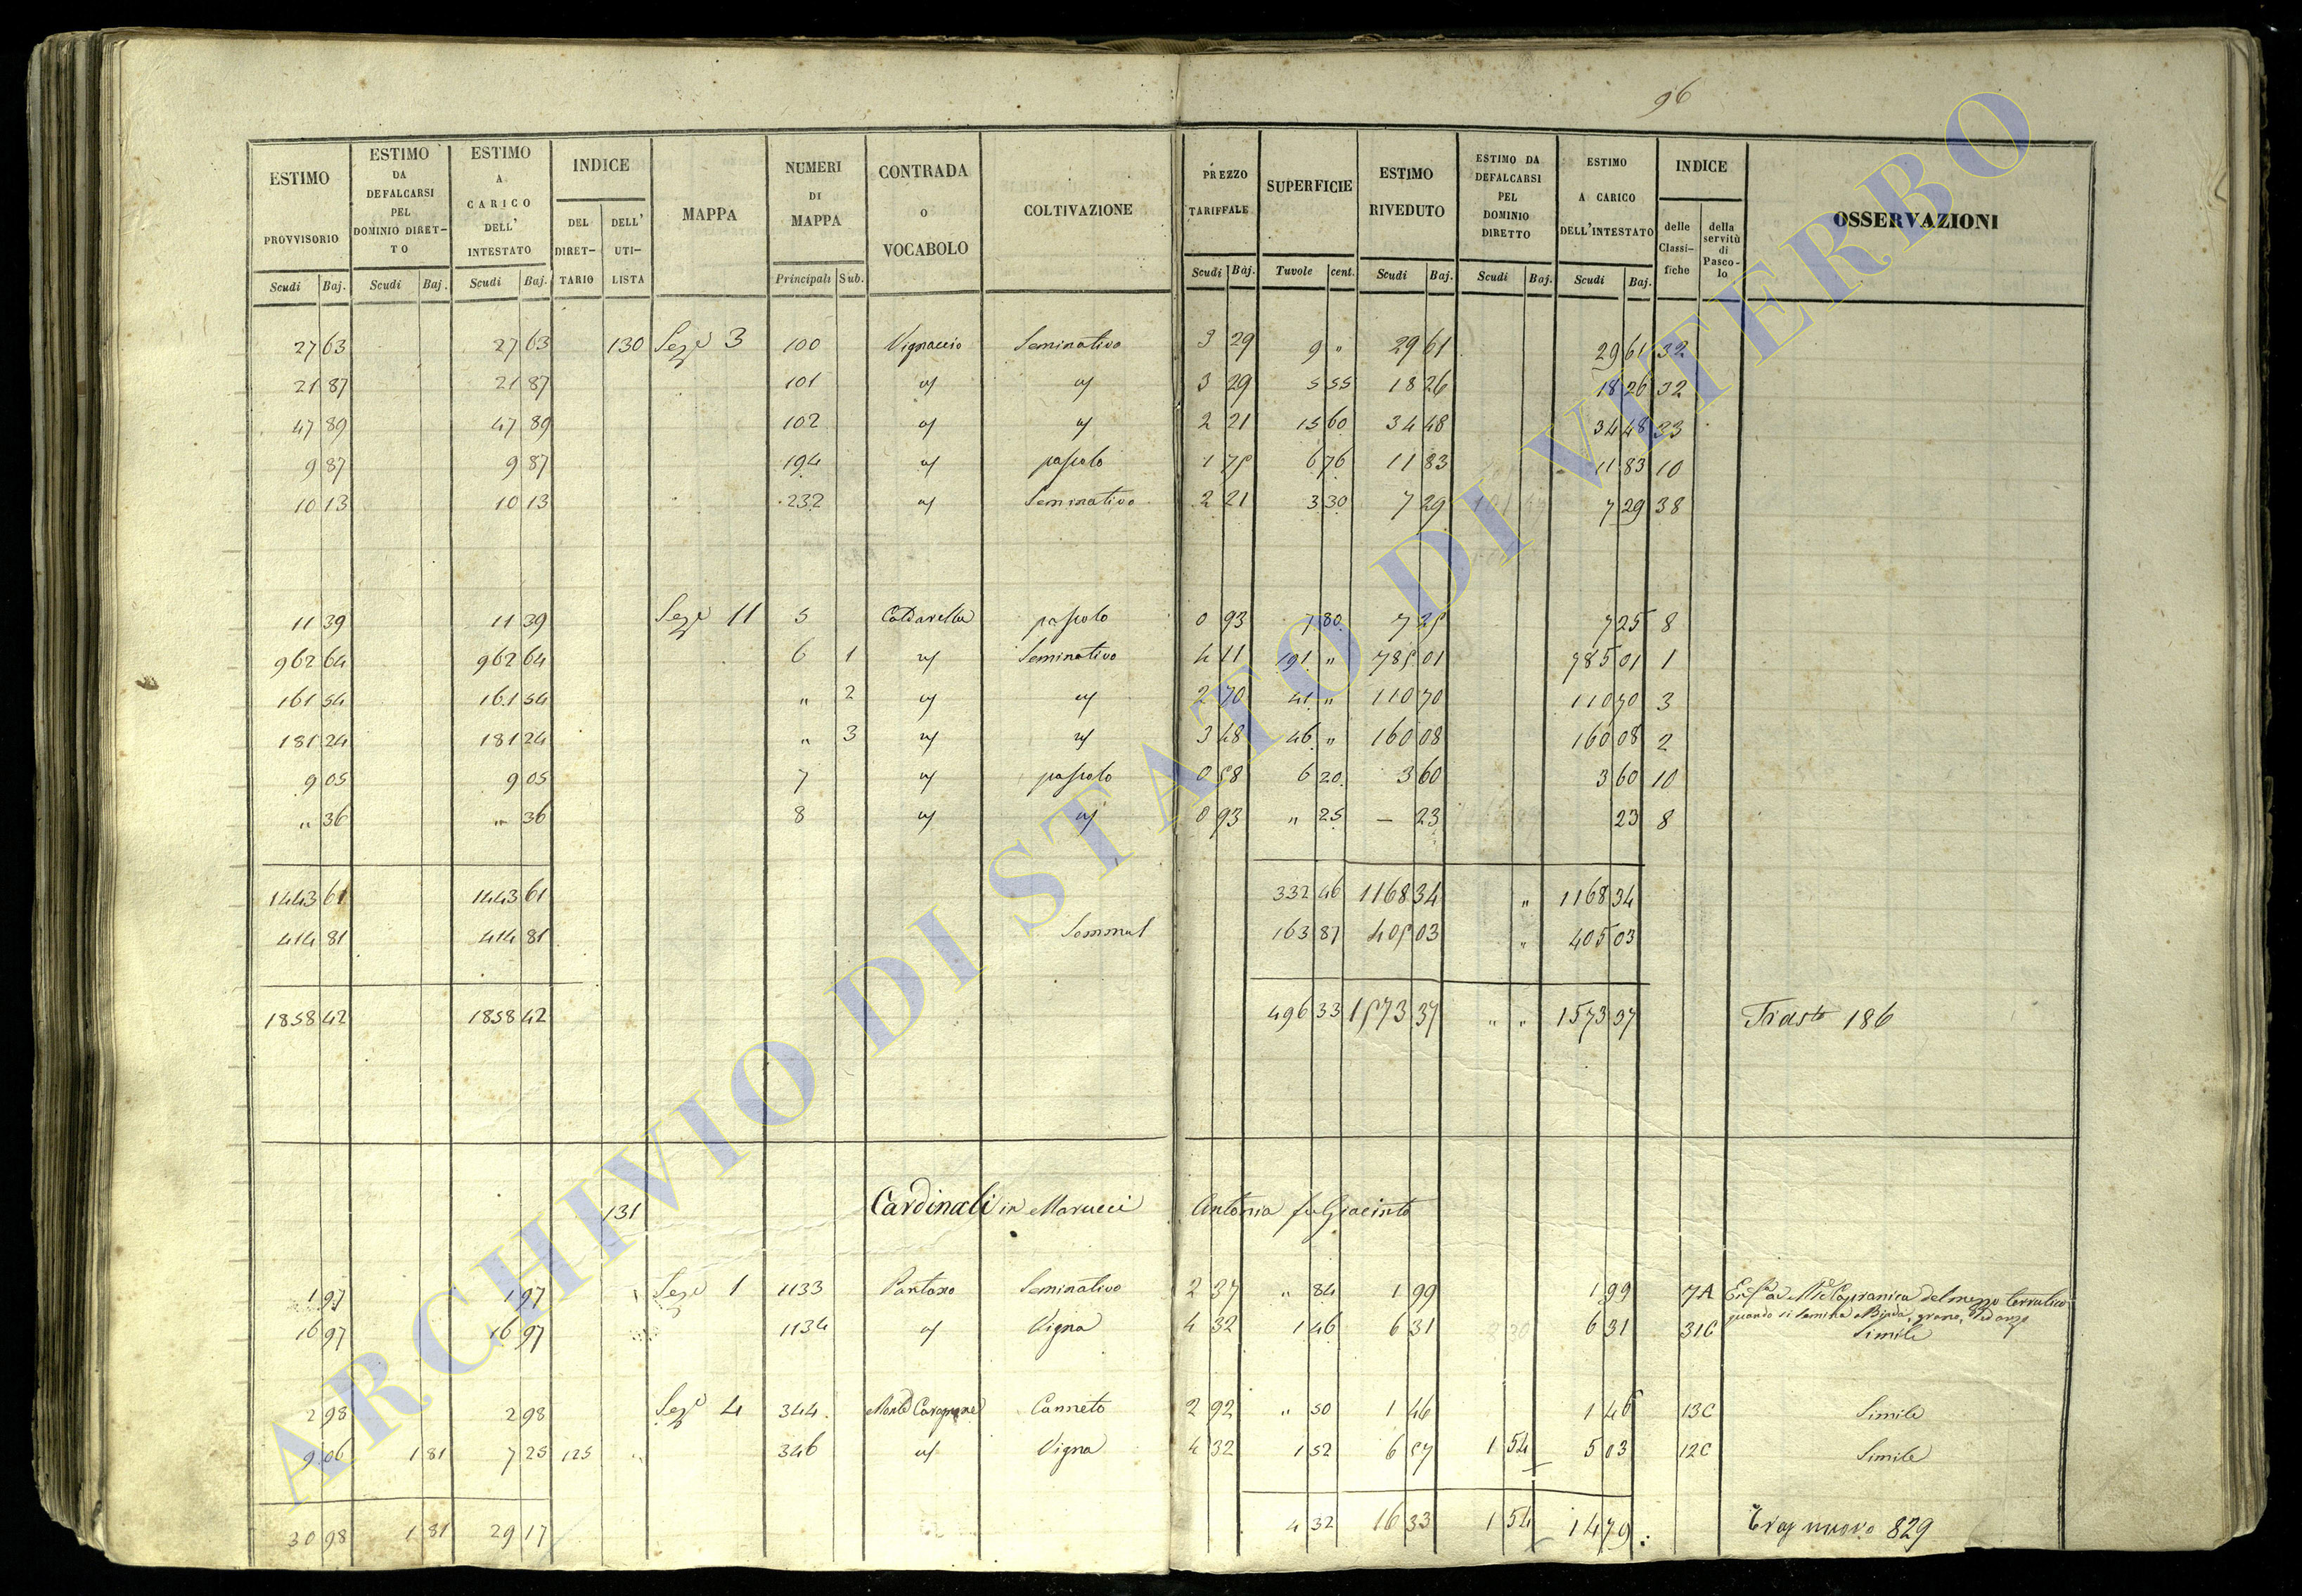 96
ESTIMO PROVVISORIO Scudi Baj.
ESTIMO DA DEFALCARSI PEL DOMINIO DIRETTO Scudi Baj.
ESTIMO A CARICO DELL' INTESTATO Scudi Baj.
INDICE DEL DIRETTARIO DELL' UTILISTA
MAPPA
NUMERI DI MAPPA Principali Sub.
CONTRADA O VOCABOLO
COLTIVAZIONE
PREZZO TARIFFALE Scudi Baj.
SUPERFICIE Tavole cent.
ESTIMO RIVEDUTO Scudi Baj.
ESTIMO DA DEFALCARSI PEL DOMINIO DIRETTO Scudi Baj.
ESTIMO A CARICO DELL'INTESTATO Scudi Baj.
INDICE delle Classifiche della servitù di Pascolo
OSSERVAZIONI
27 63 27 63 130 Sez.e 3 100 Vignaccio Seminativo 3 29 9 " 29 61 29 61 32
21 87 21 87 101 3 29 5 55 18 26 18 26 32
47 89 47 89 102 2 21 15 60 34 48 34 48 33
9 87 9 87 194 pascolo 1 75 6 76 11 83 11 83 10
10 13 10 13 232 Seminativo 2 21 3 30 7 29 7 29 38
11 39 11 39 Sez.e 11 5 Caldarella pascolo 0 93 7 80 7 25 7 25 8
962 64 962 64 6 1 Seminativo 4 11 191 " 785 01 785 01 1
161 54 161 54 " 2 2 70 41 " 110 70 110 70 3
181 24 181 24 " 3 3 48 46 " 160 08 160 08 2
9 05 9 05 7 pascolo 0 58 6 20 3 60 3 60 10
" 36 " 36 8 0 93 " 25 — 23 23 8
1443 61 1443 61 332 46 1168 34 " 1168 34
414 81 414 81 163 87 405 03 " 405 03
1858 42 1858 42 496 33 1573 37 " " 1573 37 186
131 Cardinali in Marucci Antonia fu Giacinto
1 97 1 97 Sez.e 1 1133 Pantano Seminativo 2 37 " 84 1 99 1 99 7A
16 97 16 97 1134 Vigna 4 32 1 46 6 31 6 31 31C Simile
2 98 2 98 Sez.e 4 344 Canneto 2 92 " 50 1 46 1 46 13C Simile
9 06 1 81 7 25 125 346 Vigna 4 32 1 52 6 57 1 54 5 03 12C Simile
30 98 1 81 29 17 4 32 16 33 1 54 14 79 nuovo 829
ARCHIVIO DI STATO DI VITERBO